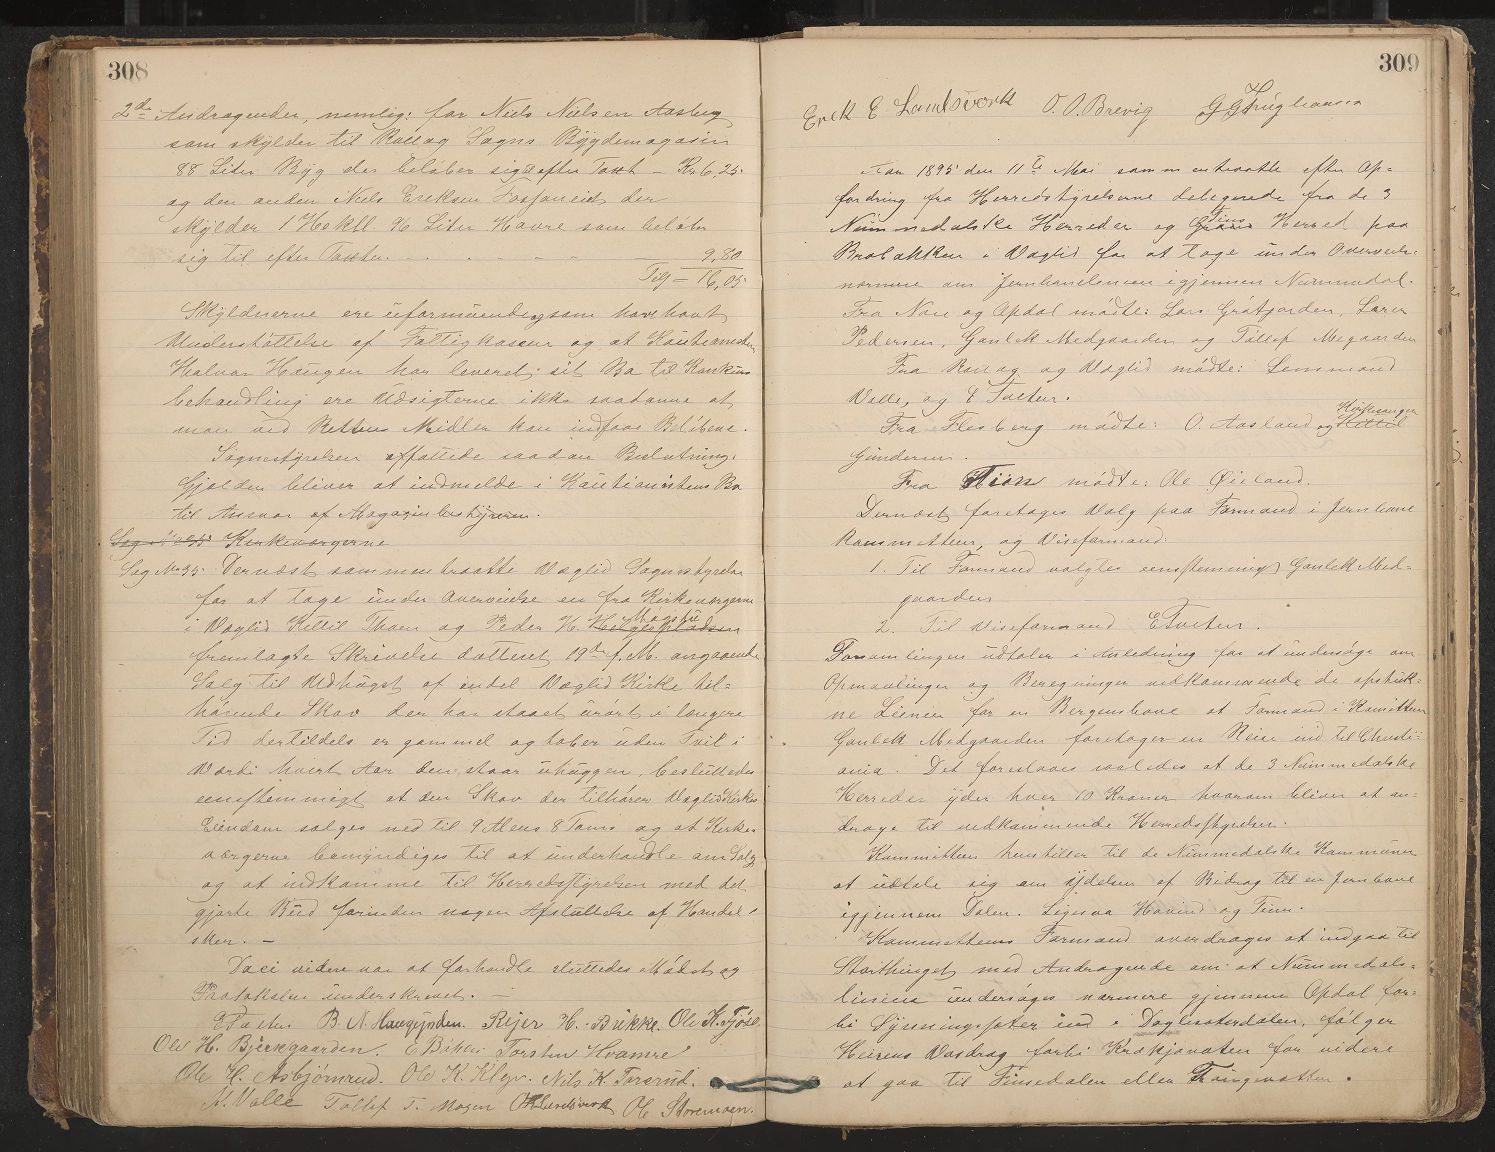 308
2de Andragender, nemlig: for Niels Nielsen Aasberg
som skylder til Rollag Sogns Bygdemagasin
88 Liter Byg der beløber sig efter Taxt — Kr 6,25
og den anden Niels Eriksen Fosfaneiet der
skylder 1 Hoktl. 96 Liter Havre som beløber
sig til efter Taxten. — 9,80
Tilg = 16,05
Skyldnerne ere uformuende, som have havt
Understøttelse af Fattigkassen og at Kautionisten
Halvor Haugen har leveret sit Bo til Konkurs
behandling ere Udsigterne ikke saadanne at
man ved Rettens Midler kan indfaae Beløbene.
Sognestyrelsen affattede saadan Beslutning:
Gjælden bliver at indmelde i Kautionistens Bo
til Ansvar af Magasinbestyreren.
Sag No 35 Kirkeværgerne
Sag No 35. Dernæst sammentraatte Væglid Sognestyrelse
for at tage under Overveielse en fra Kirkeværgerne
i Væglid Kittil Thoen og Peder H. Helgespladsen
fremlagte Skrivelse datteret 19de f. M. angaaende
Salg til Udhugst af endel Væglid Kirke til-
hørende Skov der har staaet urørt i længere
Tid dertildels er gammel og taber uden Tvil i
Værdi hvert Aar den staar uhuggen, besluttedes
eenstemmigt at den Skov der tilhører Væglid Kirkes
Eiendom sælges ned til 9 Alens 8 Toms og at Kirke-
værgerne bemyndiges til at underhandle om Salg
og at indkomme til Herredsstyrelsen med det
gjorte Bud forinden nogen Afsluttelse af Handel
sker. —
Da ei videre var at forhandle sluttedes Mødet og
Protokolen underskrevet. —
E Tveten B. N. Haugynden. Reier H. Bukke. Ole K. Fjøse
Ole H. Bjerkgaarden. E Bikeri Torsten Hvamre
Ole H. Asbjørnrud. Ole K. Kleyv. Nils K. Torsrud.
A. Valle Tollef T. Mogen O Landsverk Ole Storemoen.
309
Erek E Landsverk O. O. Brevig G G
Aar 1895 den 11te Mai sammentraatte efter Op-
fordring fra Herredstyrelserne delegerede fra de 3
Nummedalske Herreder og Tins Herred paa
Brobakken i Væglid for at tage under Overvei-
nærmere om Jernbanelinien igjennem Nummedal.
Fra Nore og Opdal mødte: Lars Gråtjorden, Lærer
Pedersen, Gunlek Medgaarden og Tollef Megaarden
Fra Rollag og Væglid mødte: Lensmand
Valle, og E Tveten.
Fra Flesberg mødte: O. Aasland og Kirkesanger Kittil
Gundersen.
Fra Tinn mødte: Ole Øiland.
Dernæst foretoges Valg paa Formand i Jernbane
kommitteen, og Viseformand:
1. Til Formand valgtes eenstemmigt Gunlek Med-
gaarden
2. Til Viseformand E Tveten.
Forsamlingen udtaler i Anledning for at undersøge om
Opmaalinger og Beregninger vedkommende de opstuk-
ne Linier for en Bergensbane at Formand i Komitteen
Gunlek Medgaarden foretager en Reise ind til Christi-
ania. Det foreslaaes saaledes at de 3 Nummedalske
Herreder yder hver 10 Kroner hvorom bliver at an-
drage til vedkommende Herredsstyrelser.
Kommitteen henstiller til de Nummedalske Kommuner
at udtale sig om Ydelsen af Bidrag til en Jernbane
igjennem Dalen. Ligesaa Hovind og Tinn.
Kommitteens Formand overdrages at indgaa til
Storthinget med Andragende om at Nummedals-
linien undersøges nærmere gjennem Opdal for-
bi ind i Dagliseterdalen, følger
Heinens Vasdrag forbi Krækjavaten for videre
at gaa til Finsedalen eller